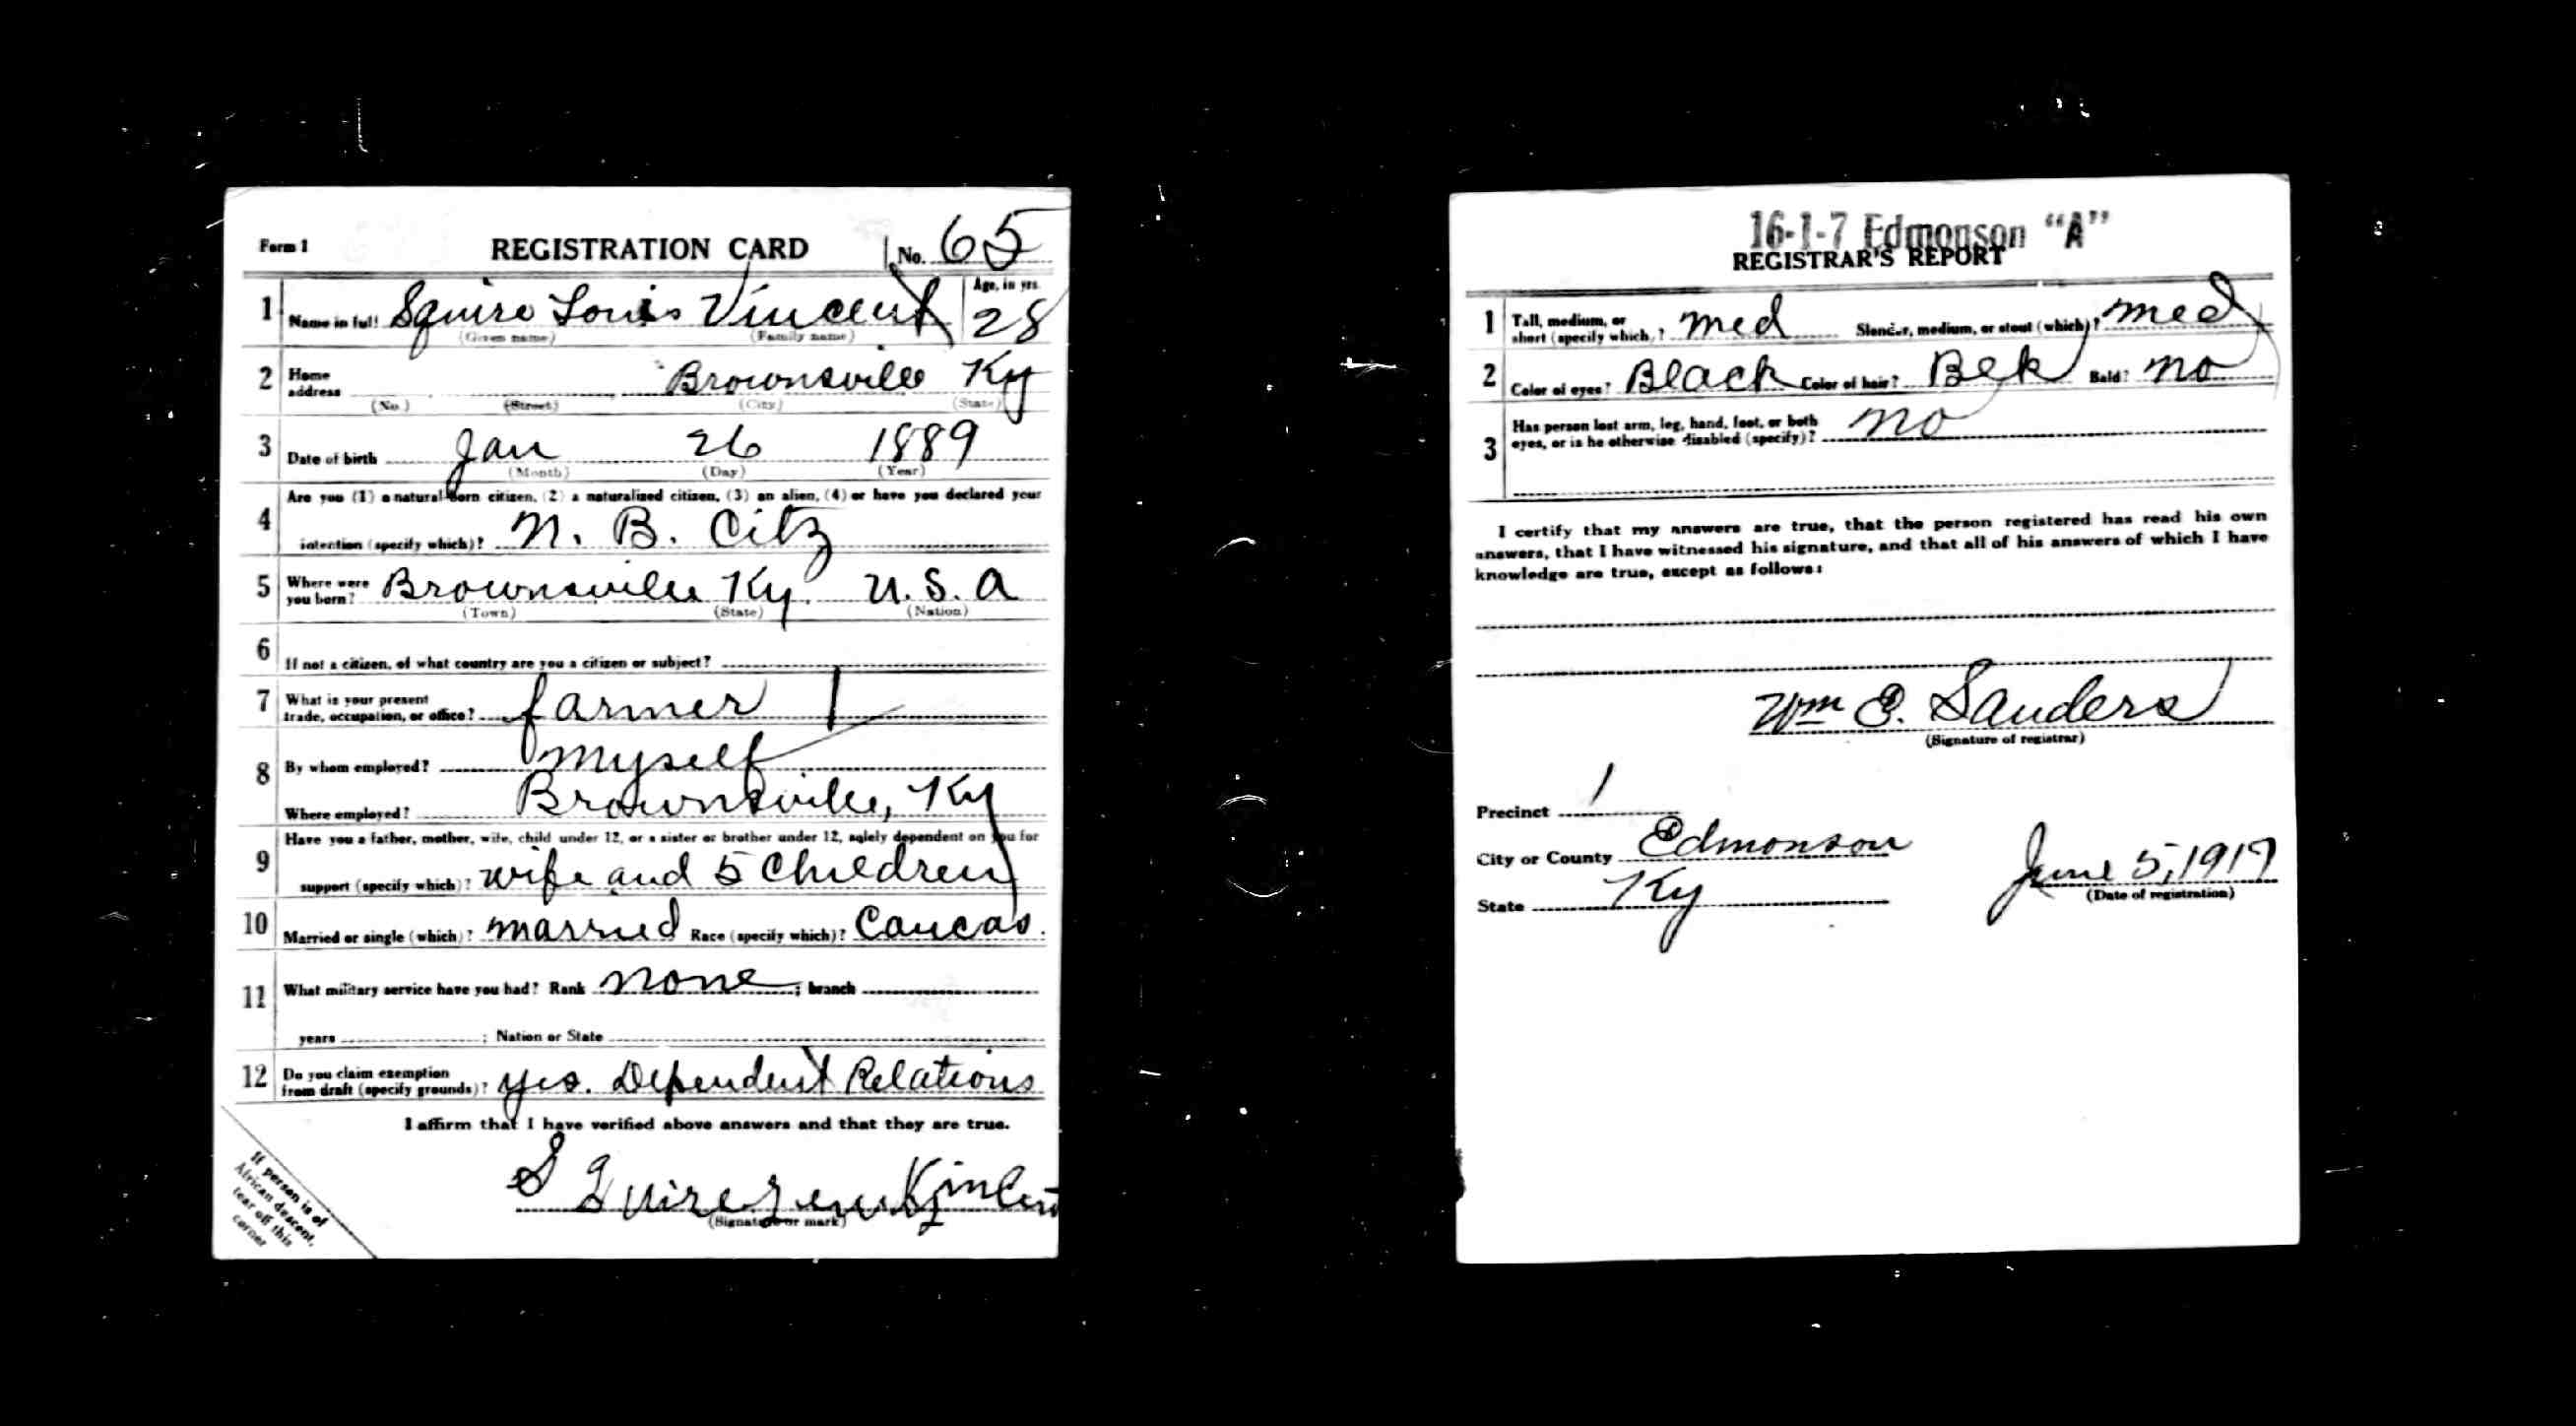 Form 1 REGISTRATION CARD No. 65
1 Name in full Squire Louis Vincent Age, in yrs. 28
(Given name) (Family name)
2 Home address Brownsville Ky
(No.) (Street) (City) (State)
3 Date of birth Jan 26 1889
(Month) (Day) (Year)
4 Are you (1) a natural-born citizen, (2) a naturalized citizen, (3) an alien, (4) or have you declared your
intention (specify which)? N. B. Citz
5 Where were you born? Brownsville Ky. U.S.A
(Town) (State) (Nation)
6 If not a citizen, of what country are you a citizen or subject?
7 What is your present trade, occupation, or office? farmer 1
8 By whom employed? myself
Where employed? Brownsville, Ky
9 Have you a father, mother, wife, child under 12, or a sister or brother under 12, solely dependent on you for
support (specify which)? wife and 5 Children
10 Married or single (which)? married Race (specify which)? Caucas.
11 What military service have you had? Rank none; branch
years ; Nation or State
12 Do you claim exemption from draft (specify grounds)? yes. Dependent Relations
I affirm that I have verified above answers and that they are true.
Squire
(Signature or mark)
If person is of
African descent,
tear off this
corner
16-1-7 Edmonson "A"
REGISTRAR'S REPORT
1 Tall, medium, or short (specify which)? med Slender, medium, or stout (which)? med
2 Color of eyes? Black Color of hair? Blk Bald? no
3 Has person lost arm, leg, hand, foot, or both
eyes, or is he otherwise disabled (specify)? no
I certify that my answers are true, that the person registered has read his own
answers, that I have witnessed his signature, and that all of his answers of which I have
knowledge are true, except as follows:
Wm E. Sanders
(Signature of registrar)
Precinct 1
City or County Edmonson
State Ky
June 5, 1917
(Date of registration)